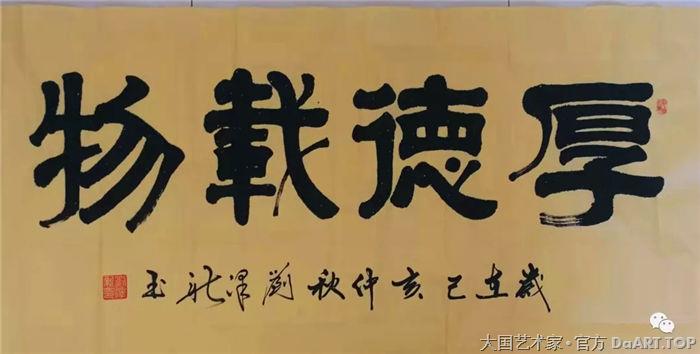 厚德載物
歲在己亥仲秋劉澤龍玉
大国艺术家·官方 DaART.TOP